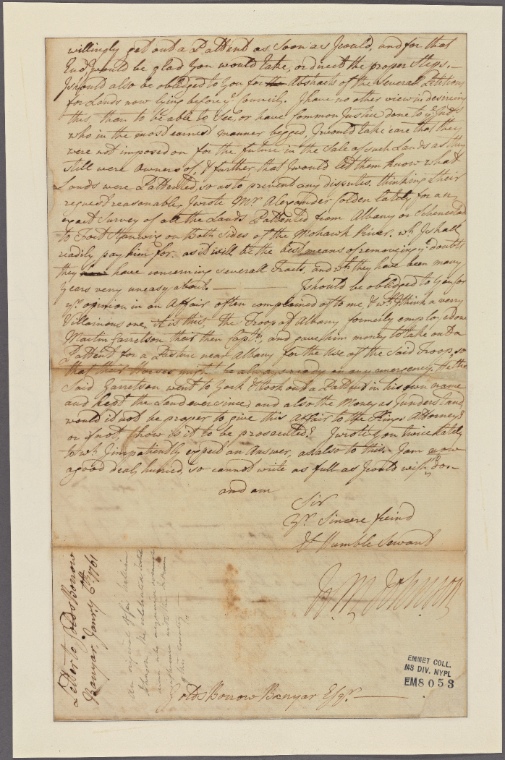 willingly get out a Pattent as soon as I could, and for that
End, would be glad you would take, or direct the proper steps.
I should also be obliged to you for the Abstracts of the several Petitions
for Lands now lying before ye Councile. I have no other view in desireing
this, than to be able to see, or have common Justice done to ye Inds.
who in the most earnest manner begged I would take care that they
were not imposed on for the future in the Sale of such Lands as they
Still were owners of, & further that I would let them know what
Lands were Pattented, so as to prevent any disputes. thinking their
request reasonable, I wrote Mr. Alexander Colden lately, for an
exact Survey of all the Lands Pattented from Albany or Schenectady
to Fort Stanwix on both Sides of the Mohawk River. wh. I shall
readily pay him for. as it will be the best means of removeing ye doubts
they have concerning severall Tracts, and wh. they have been many
Years very uneasy about. I should be obliged to you for
yr. opinion in an Affair often complained of to me & I think a very
Villainous one, it is this. the Troop of Albany formerly employed one
Martin Garretson their then Capt. and gave him money to take out a
Pattend for a Pasture near Albany for the use of the Said Troop, so
that their Horses might be always ready in any emergency. the
Said Garretson went to York & took out a Pattent in his own name
and kept the Land ever since, and also the Money as I understand
would it not be proper to give this affair to the Kings Attorney?
or if not, how is it to be prosecuted? I wrote you twice lately,
to wh. I impatiently expect an Answer, as also to this. I am now
a good deal hurried, so cannot write as full as I could wish
and am
Sir
Yr. Sincere freind
& Humble Servant
Wm. Johnson
Goldsbrow Banyar Esqr.
Letter to Goldsborow
Banyar, Janry. 6th 1761
EMMET COLL.
MS DIV. NYPL
EM8053